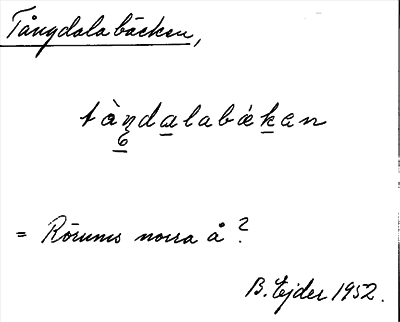 Tångdalabäcken,
tàŋdalabækan
6
= Rörums norra å?
B. Ejder 1952.